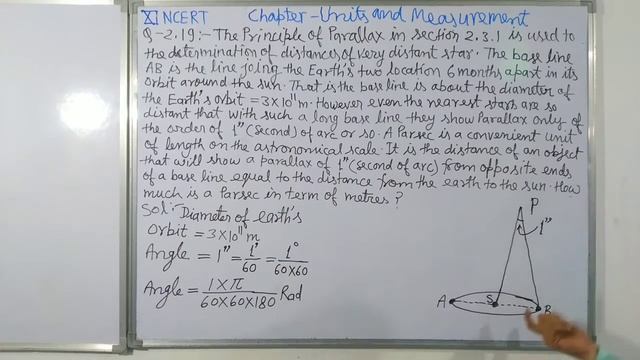 XI NCERT Chapter-Units and Measurement
Q-2.19:- The Principle of Parallax in section 2.3.1 is used to
the determination of distances of very distant star. The base line
AB is the line joing the Earth's two location 6 months apart in its
orbit around the sun. That is the base line is about the diameter of
the Earth's orbit = 3×10¹¹m. However even the nearest stars are so
distant that with such a long base line they show Parallax only of
the order of 1" (second) of arc or so. A Parsec is a convenient unit
of length on the astronomical scale. It is the distance of an object
that will show a parallax of 1" (second of arc) from opposite ends
of a base line equal to the distance from the earth to the sun. How
much is a Parsec in term of metres?
Sol: Diameter of earth's
Orbit = 3×10¹¹ m
Angle = 1" = 1'/60 = 1°/60×60
Angle = 1×π/60×60×180 Rad
P
1"
A
S
B